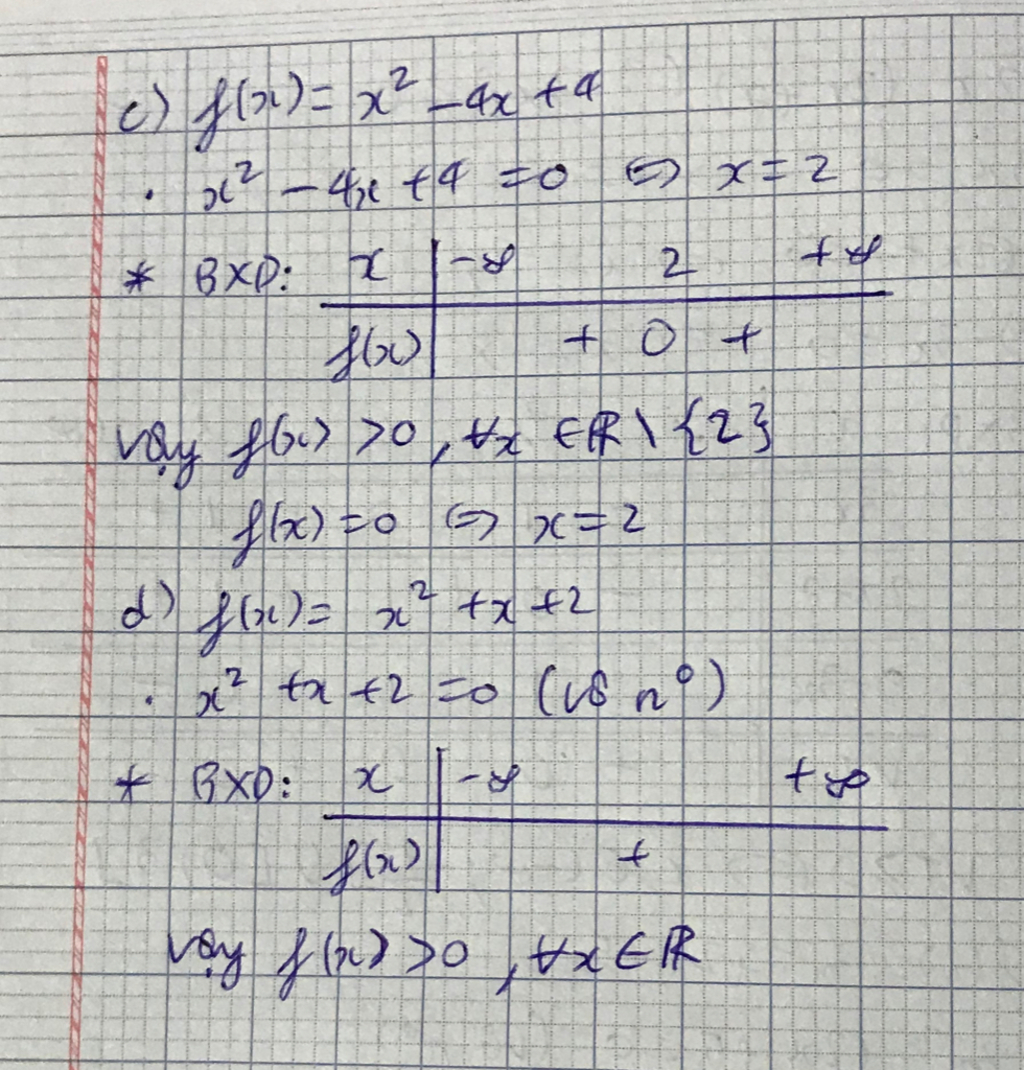 c) f(x) = x² - 4x + 4
. x² - 4x + 4 = 0 ⇔ x = 2
* BXD: x | -∞ 2 +∞
f(x) | + 0 +
Vậy f(x) > 0, ∀x ∈ ℝ \ {2}
f(x) = 0 ⇔ x = 2
d) f(x) = x² + x + 2
. x² + x + 2 = 0 (vô n⁰)
* BXD: x | -∞ +∞
f(x) | +
Vậy f(x) > 0, ∀x ∈ ℝ